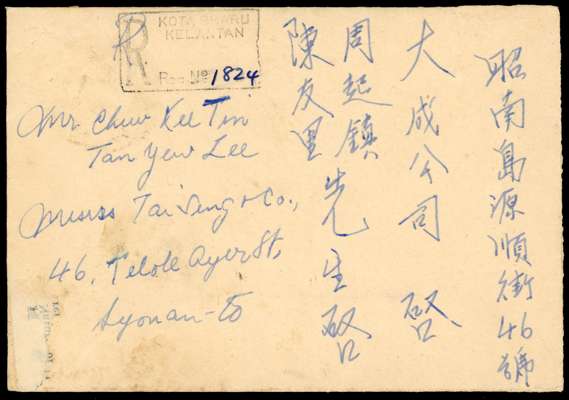 R
KOTA BHARU
KELANTAN
Reg No 1824
昭南島源順街46號
大成公司 啓
周起鎮
陳友里
先生啓
Mr Chew Kee Tin
Tan Yew Lee
Messrs Tai Seng & Co.,
46, Telok Ayer St,
Syonan-to